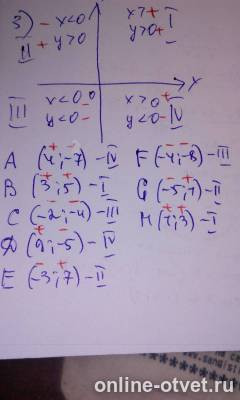 3) - x<0 x>+ I
II + y>0 y>0+
x
III x<0 0 x>0+
y<0- y<0- IV
A (4;-7) - IV F (-4;-8) - III
B (3;5) - I G (-5;1) - II
C (-2;-4) - III H (1;3) - I
D (9;-5) - IV
E (-3;7) - II
online-otvet.ru